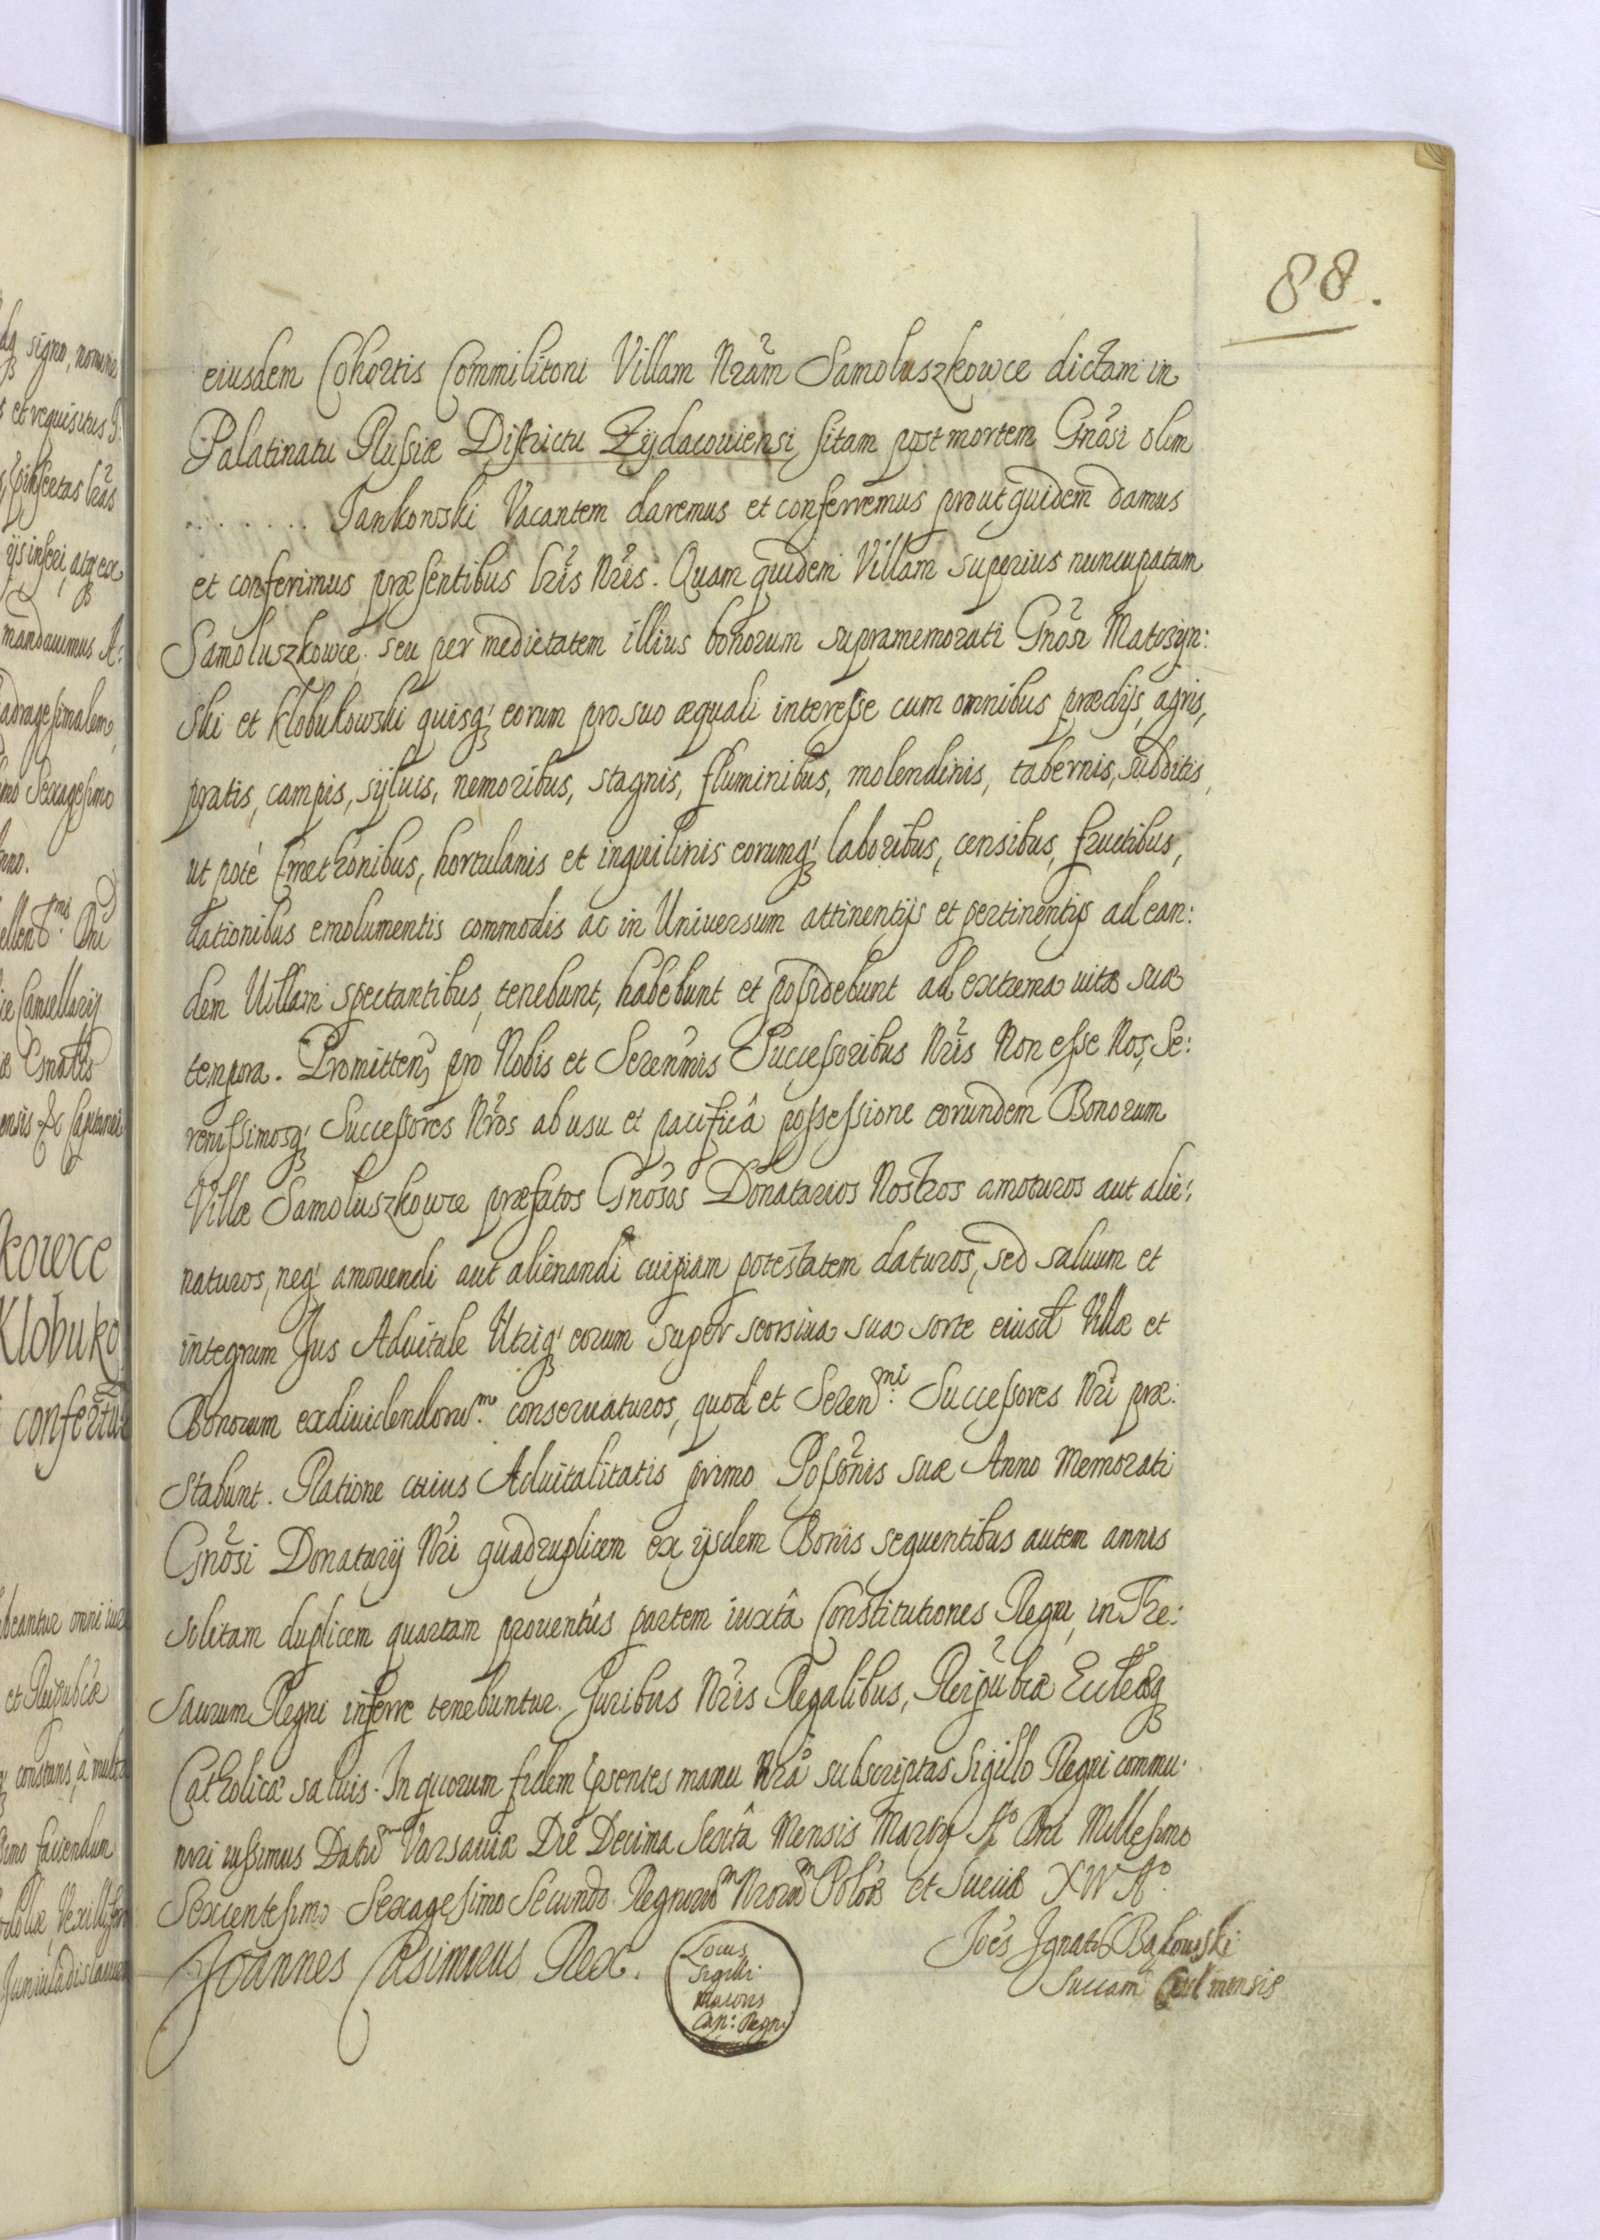 88.
eiusdem Cohortis Commilitoni Villam Nrãm Samoluszkowce dictam in
Palatinatu Russiæ Districtu Zÿdacouiensi sitam post mortem Gnõsi olim
........ Jankowski Vacantem daremus et conferremus prout quidem damus
et conferimus præsentibus lrĩs Nrĩs. Quam quidem Villam superius nuncupatam
Samoluszkowce seu per medietatem illius bonorum supramemorati Gnõsi Matczyn:
ski et Klobukowski quisq; eorum pro suo æquali interesse cum omnibus prædijs, agris,
pratis, campis, sÿluis, nemoribus, stagnis, fluminibus, molendinis, tabernis, subditis,
ut poté Cmethonibus, hortulanis et inquilinis eorumq; laboribus, censibus, fructibus,
dationibus emolumentis commodis ac in Universum attinentijs et pertinentijs ad ean:
dem Villam spectantibus, tenebunt, habebunt et possidebunt ad extrema uitæ suæ
tempora. Promittens pro Nobis et Serenmis Successoribus Nrĩs Non esse Nos, Se:
renissimosq; Successores Nrõs ab usu et pacificâ possessione eorundem Bonorum
Villæ Samoluszkowce præfatos Gnõsos Donatarios Nostros amoturos aut alie:
naturos, neq; amouendi aut alienandi cuipiam potestatem daturos, sed saluum et
integrum Jus Aduitale Utriq; eorum super seorsiua sua sorte eiusd Villæ et
Bonorum exdiuidendorum conseruaturos, quod et Seren.mi Successores Nrĩ præ:
stabunt. Ratione cuius Aduitalitatis primo Possõnis suæ Anno Memorati
Gnõsi Donatarij Nrĩ quadruplicem ex ijsdem Bonis sequentibus autem annis
solitam duplicem quartam prouentûs partem iuxtâ Constitutiones Regni, in The:
saurum Regni inferre tenebuntur. Juribus Nrĩs Regalibus, Reipũbcæ Ecclæq;
Catholicæ saluis. In quorum fidem psentes manu Nrã subscriptas Sigillo Regni commu:
niri iussimus Datũ Varsauiæ Die Decima Sextâ Mensis Martij Aº Dni Millesimo
Sexcentesimo Sexagesimo Secundo Regnorũ Nrorũ Polõæ et Sueciæ XIV Aº.
Joannes Casimirus Rex.
Locus
Sigilli
Maioris
Can: Regni
Joẽs Ignatõ Bąkowski
Succam Culmensis